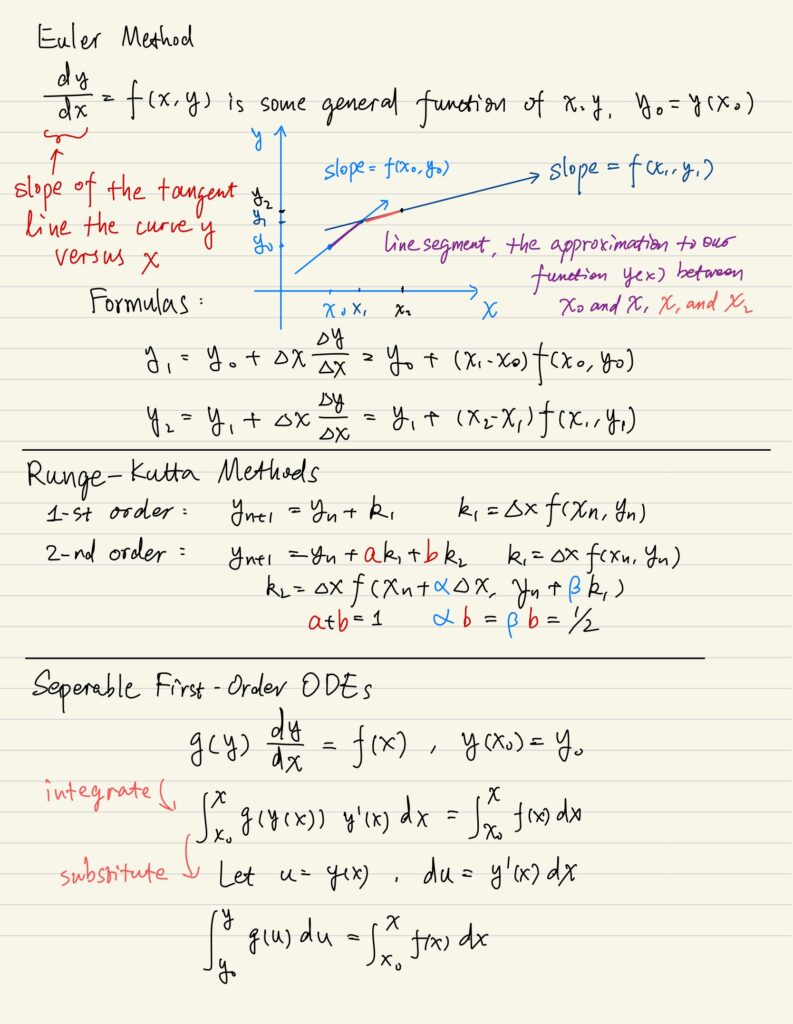 Euler Method
dy/dx = f(x,y) is some general function of x,y, y₀ = y(x₀)
slope of the tangent
line the curve y
versus x
y
slope = f(x₀,y₀)
slope = f(x₁,y₁)
y₂
y₁
y₀
line segment, the approximation to our
function y(x) between
x₀ and x₁ x₁ and x₂
x₀ x₁ x₂ x
Formulas:
y₁ = y₀ + Δx Δy/Δx = y₀ + (x₁-x₀) f(x₀,y₀)
y₂ = y₁ + Δx Δy/Δx = y₁ + (x₂-x₁) f(x₁,y₁)
Runge-Kutta Methods
1-st order: yₙ₊₁ = yₙ + k₁ k₁ = Δx f(xₙ, yₙ)
2-nd order: yₙ₊₁ = yₙ + ak₁ + bk₂ k₁ = Δx f(xₙ, yₙ)
k₂ = Δx f(xₙ + αΔx, yₙ + βk₁)
a+b = 1 αb = βb = 1/2
Seperable First-Order ODEs
g(y) dy/dx = f(x), y(x₀) = y₀
integrate
∫ₓ₀ˣ g(y(x)) y'(x) dx = ∫ₓ₀ˣ f(x) dx
substitute Let u = y(x), du = y'(x) dx
∫_y₀^y g(u) du = ∫ₓ₀ˣ f(x) dx